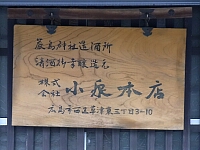 嚴島神社造酒所
清酒御幸醸造元
株式会社 小泉本店
広島市西区草津東三丁目3-10